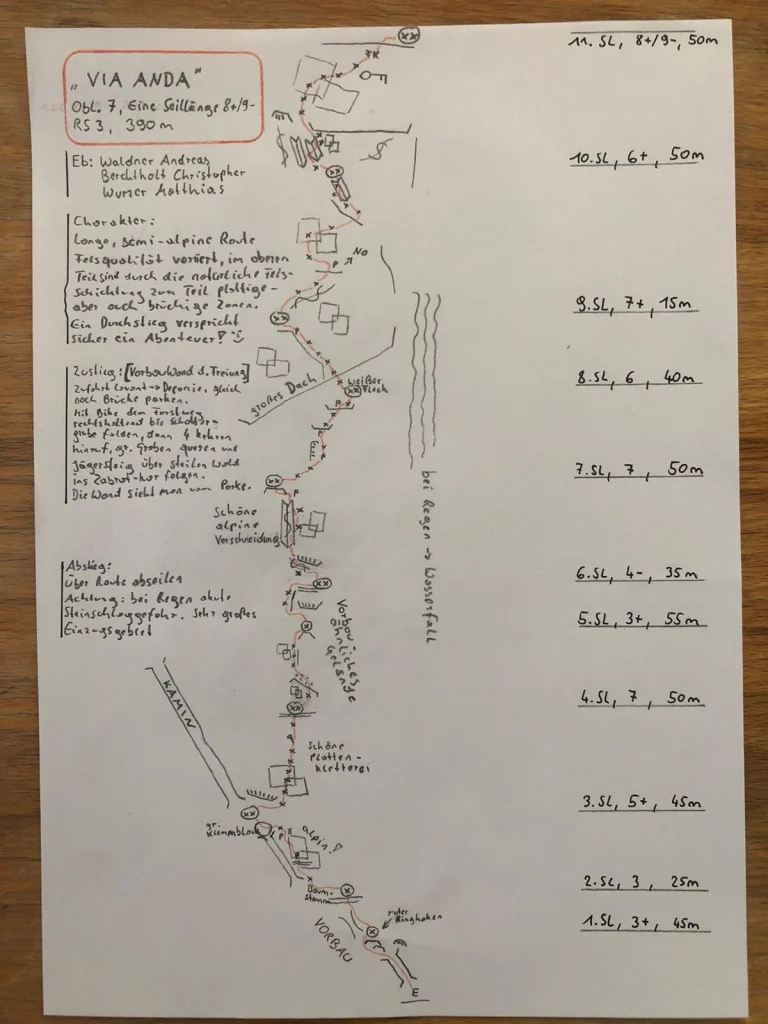 „VIA ANDA“
Obl. 7, Eine Seillänge 8+/9-
RS 3, 390m
Eb: Waldner Andreas
Berchtholt Christopher
Wurzer Matthias
Charakter:
Lange, semi-alpine Route
Felsqualität variiert, im oberen
Teil sind durch die natürliche Fels-
Schichtung zum Teil plattige-
aber auch brüchige Zonen.
Ein Durchstieg verspricht
sicher ein Abenteuer!
Zustieg: [Vorbau Wand d. Freiung]
Zufahrt Lavant -> Deponie, gleich
nach Brücke parken.
Mit Bike dem Forstweg
rechtshaltend bis Schotter-
grube folgen, dann 4 Kehren
hinauf, gr. Graben queren und
Jägersteig über steilen Wald
ins Zabrot-Kar folgen.
Die Wand sieht man vom Parkp.
Abstieg:
Über Route abseilen
Achtung: bei Regen akute
Steinschlaggefahr. Sehr großes
Einzugsgebiet
No
großes Dach
weißer
Fleck
Schöne
alpine
Verschneidung
bei Regen -> Wasserfall
Vorbau
ähnliches
Gelände
KAMIN
Schöne
Platten-
kletterei
gr.
Klemmblock
alpin!
Baum-
stamm
roter
Ringhaken
VORBAU
E
11. SL, 8+/9-, 50m
10. SL, 6+, 50m
9. SL, 7+, 15m
8. SL, 6, 40m
7. SL, 7, 50m
6. SL, 4-, 35m
5. SL, 3+, 55m
4. SL, 7, 50m
3. SL, 5+, 45m
2. SL, 3, 25m
1. SL, 3+, 45m